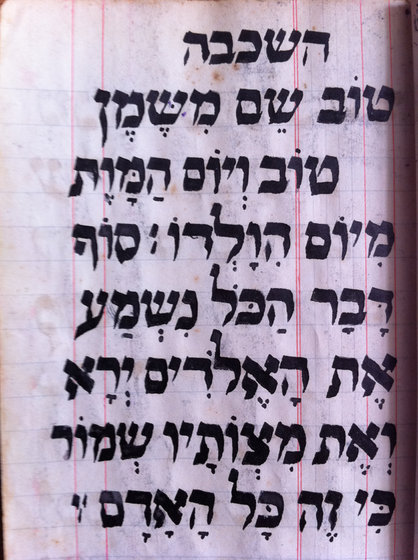 השכבה
טוֹב שֵׁם מִשֶּׁמֶן
טוֹב וְיוֹם הַמָּוֶת
מִיּוֹם הִוָּלְדוֹ: סוֹף
דָּבָר הַכֹּל נִשְׁמַע
אֶת הָאֱלֹדִים יְרָא
וְאֶת מִצְוֹתָיו שְׁמוֹר
כִּי זֶה כָּל הָאָדָם ״